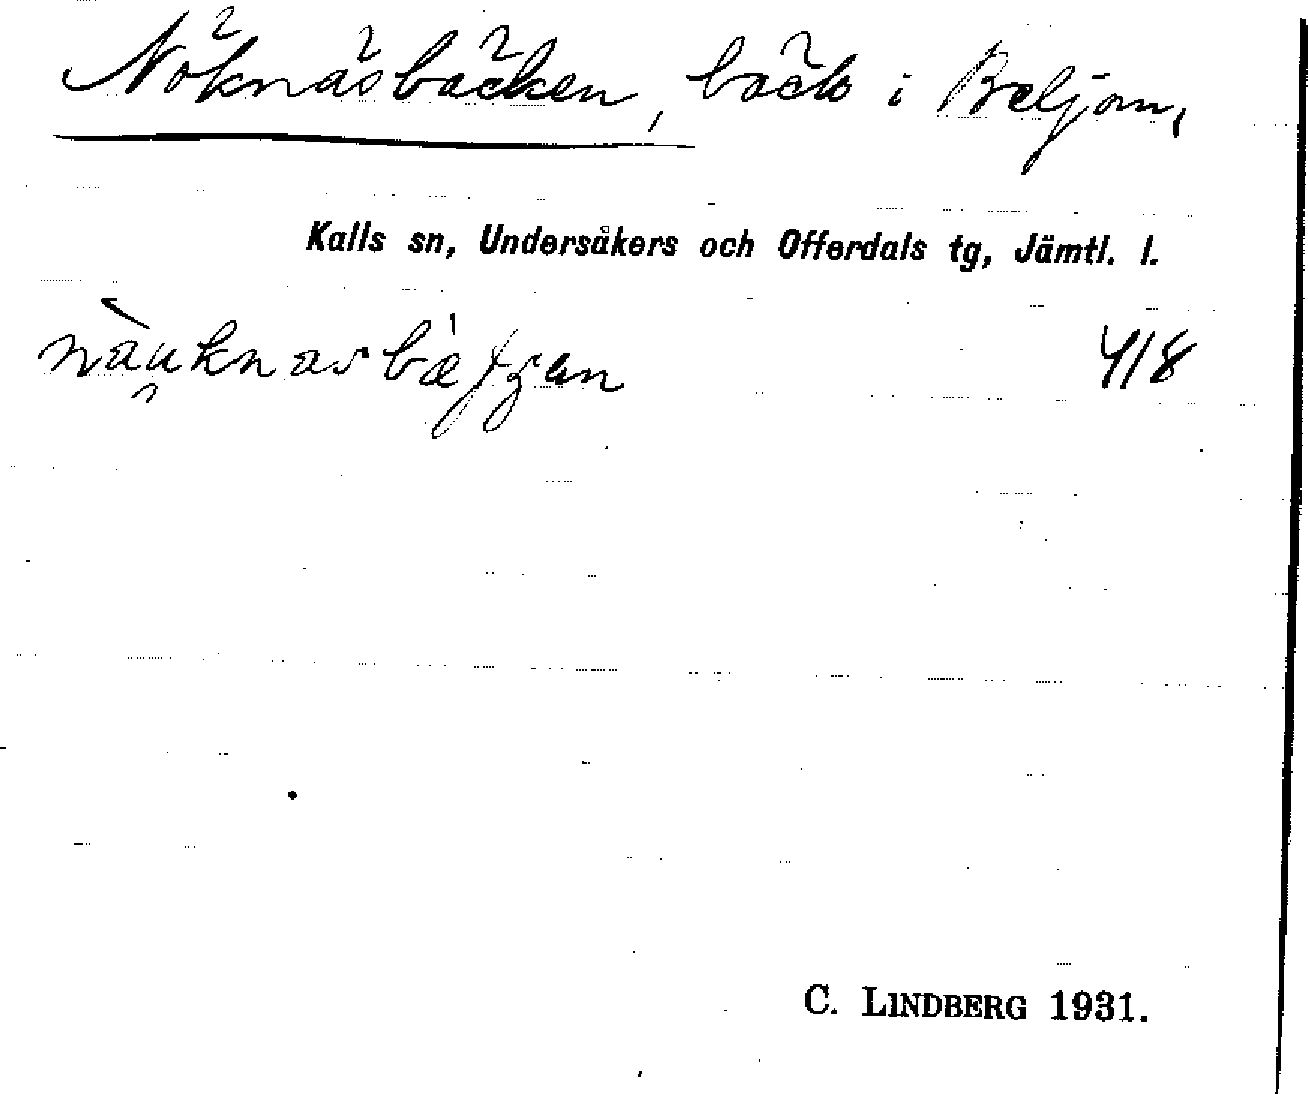 Nöknäsbäcken, bäck i Beljom,
Kalls sn, Undersåkers och Offerdals tg, Jämtl. l.
4/8
C. LINDBERG 1931.